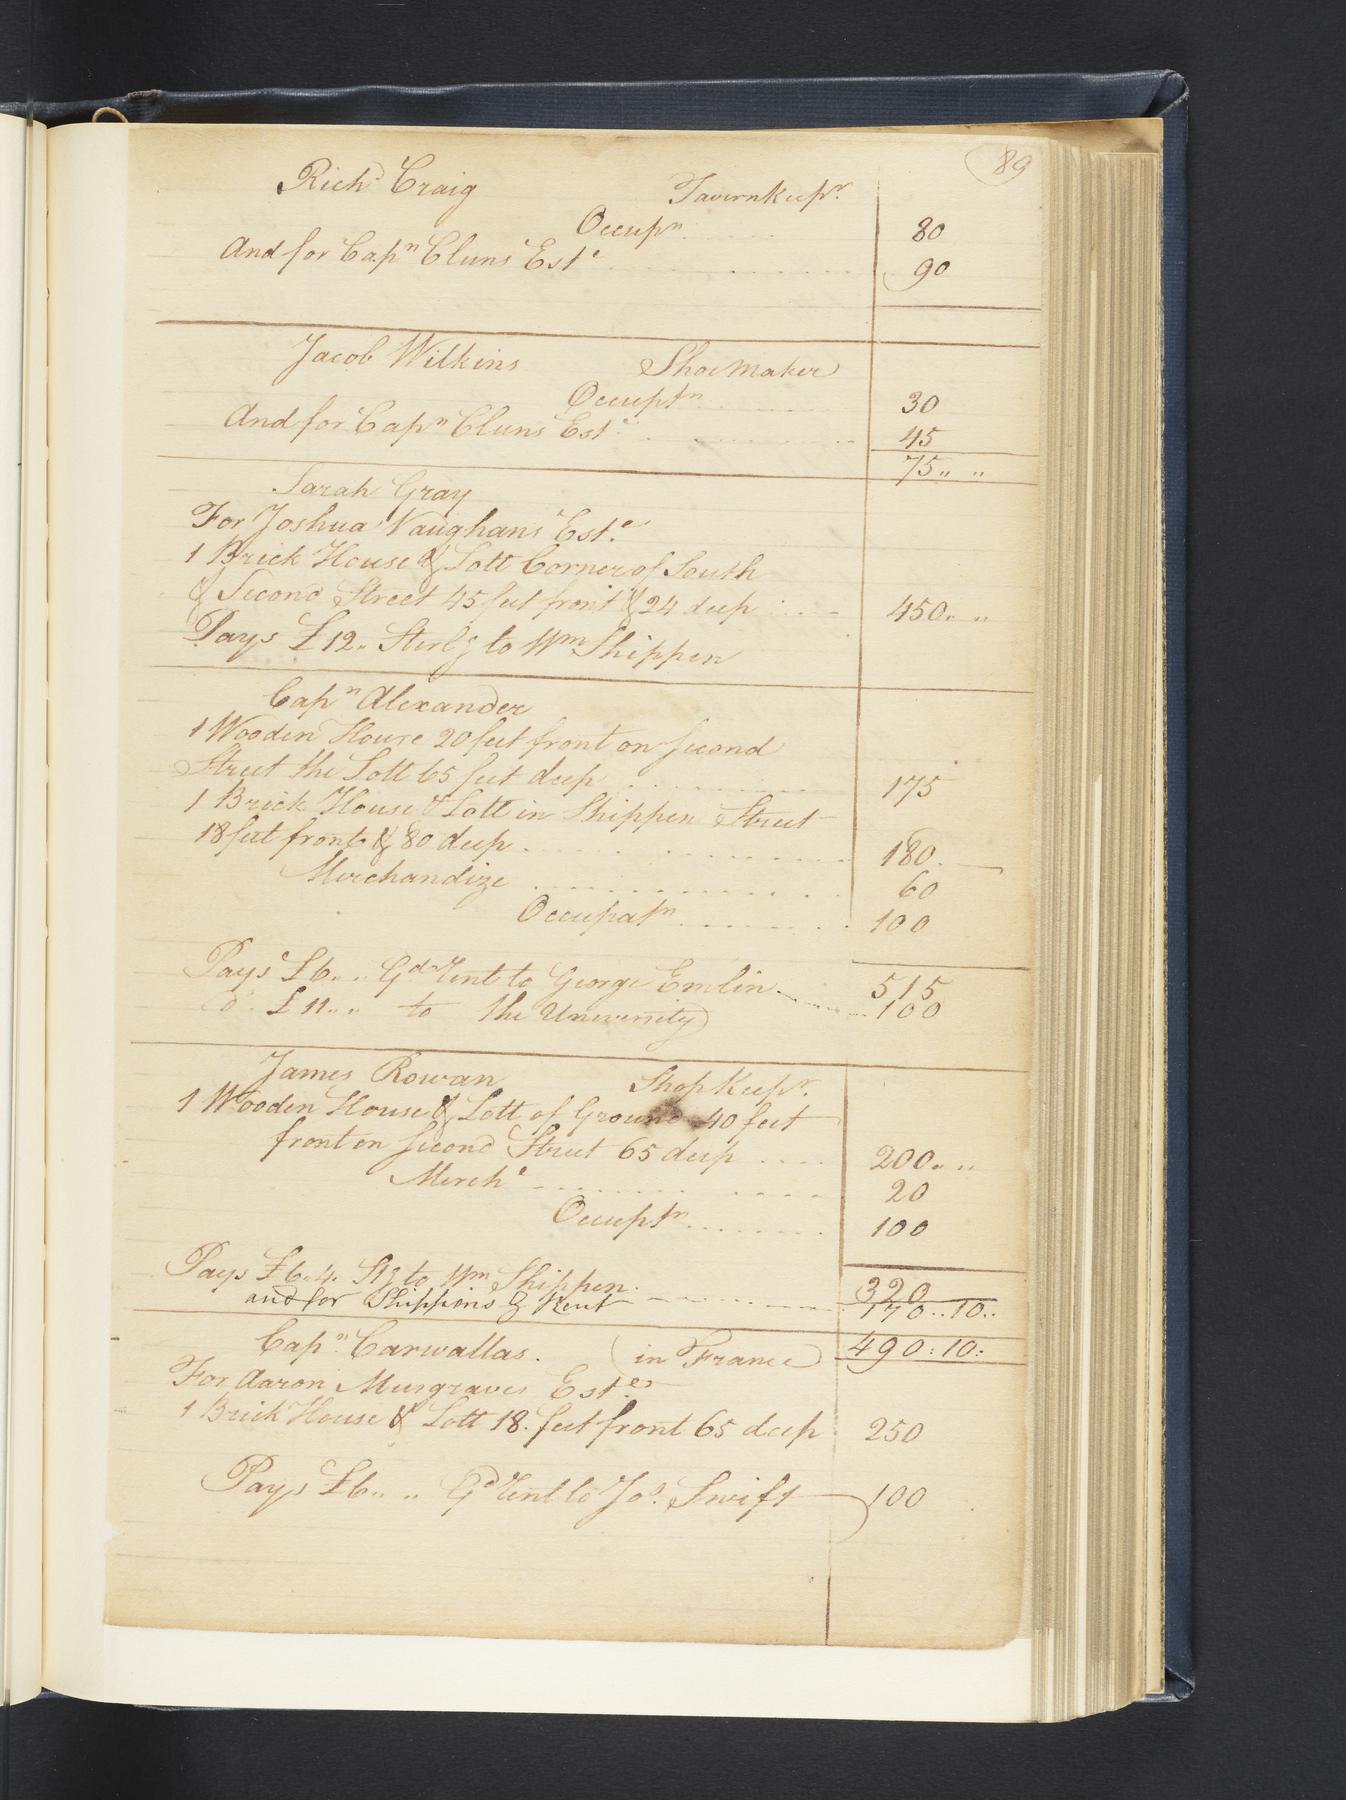 89
Richd Craig Tavernkeepr.
Occupn 80
And for Capn Cluns Este 90
Jacob Wilkins Shoemaker
Occuptn 30
And for Capn Cluns Este 45
75 " "
Sarah Gray
For Joshua Vaughans Este.
1 Brick House & Lott Corner of South
& Second Street 45 feet front & 24 deep 450 " "
Pays £12 " Sterlg to Wm Shippen
Capn Alexander
1 Wooden House 20 feet front on Second
Street the Lott 65 feet deep 175
1 Brick House & Lott in Shippen Street
18 feet front & 80 deep 180
Merchandize 60
Occupatn 100
515
Pays £6 " " Gd Rent to George Emlin 100
Do. £11 " " to the University
James Rowan Shopkeepr.
1 Wooden House & Lott of Ground 40 feet
front on Second Street 65 deep 200 " "
Merche 20
Occuptn 100
Pays £6 " 4 " Stg to Wm Shippen 320
and for Shippins G Rent 170 " 10 "
490 : 10 :
Capn Carwallas. (in France)
For Aaron Musgraves Estes
1 Brick House & Lott 18 feet front 65 deep 250
Pays £6 " " Gd Rent to Jos. Swift 100